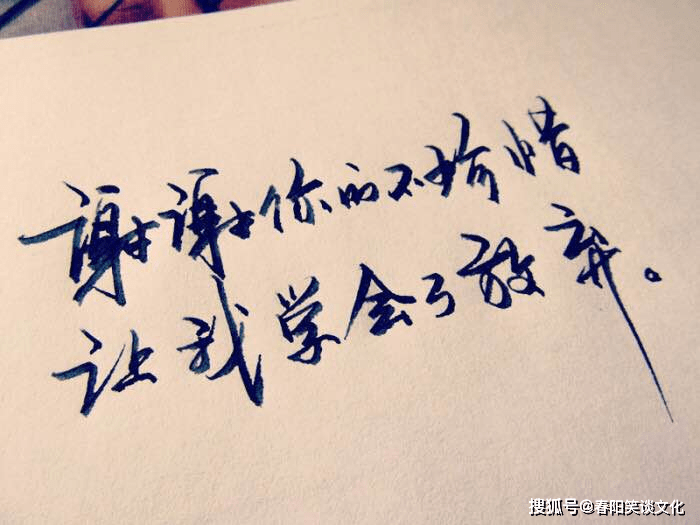 谢谢你的不珍惜
让我学会了放弃。
搜狐号@春阳笑谈文化